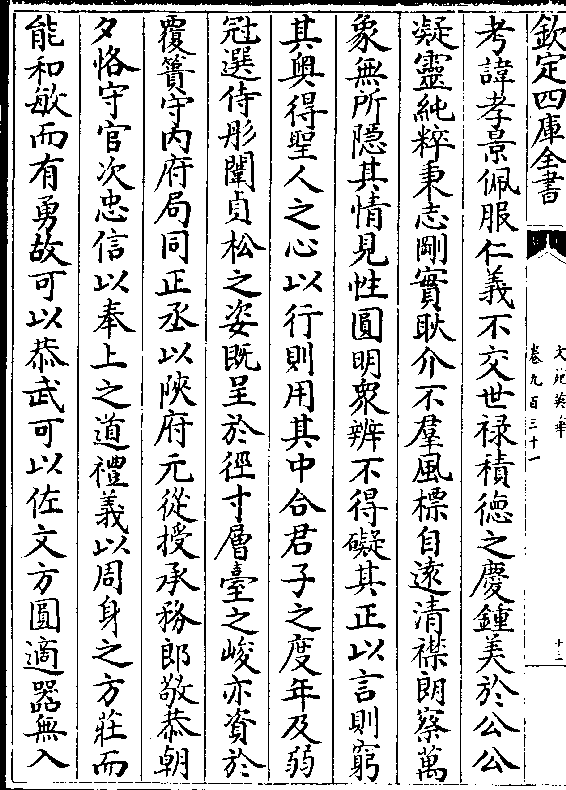 欽定四庫全書
文苑英華
卷九百三十一
十二
考諱孝景佩服仁義不交世禄積德之慶鍾美於公公
凝靈純粹秉志剛實耿介不羣風標自逺清襟朗察萬
象無所隠其情見性圓明衆辨不得礙其正以言則窮
其奥得聖人之心以行則用其中合君子之度年及弱
冠選侍彤闈貞松之姿既呈於徑寸層臺之峻亦資於
覆簣守内府局同正丞以陜府元從授承務郎敬恭朝
夕恪守官次忠信以奉上之道禮義以周身之方莊而
能和敏而有勇故可以恭武可以佐文方圓適器無入